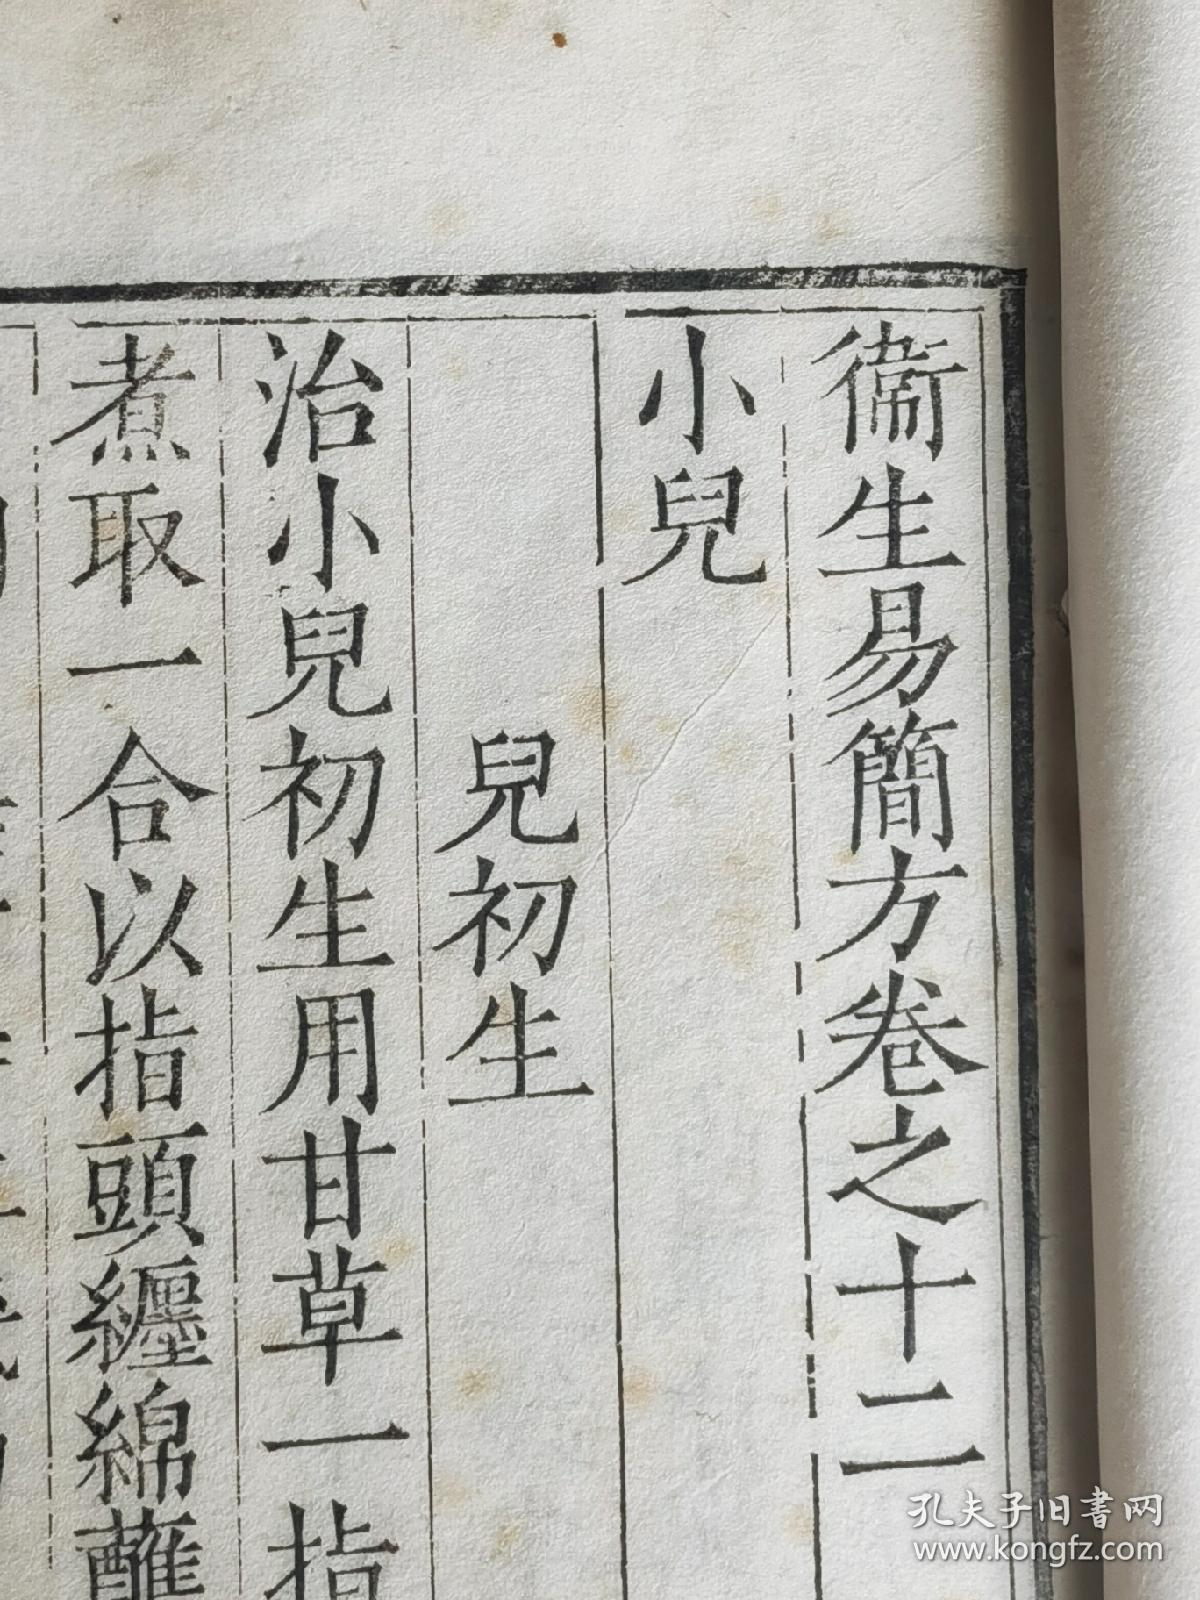 衞生易簡方卷之十二
小兒
兒初生
治小兒初生用甘草一指
煮取一合以指頭纏綿蘸
孔夫子旧書网
www.kongfz.com